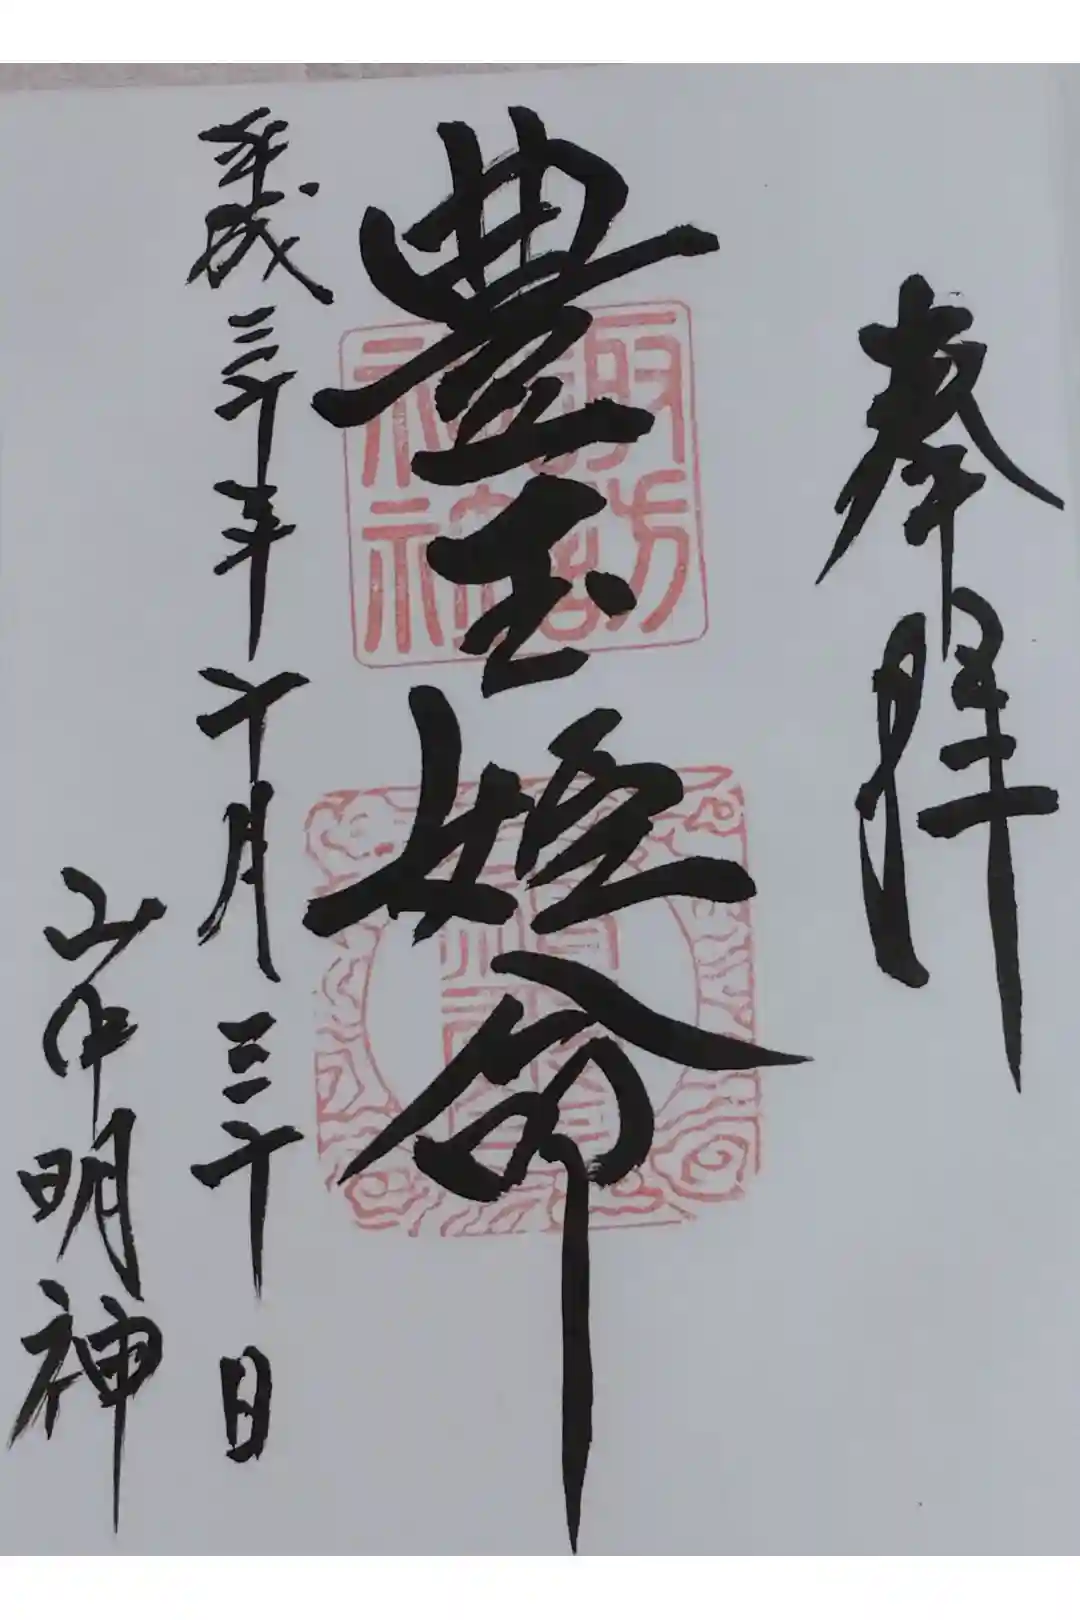 奉拝
豊玉姫命
平成三十年十月三十日
山中明神
諏訪
神社